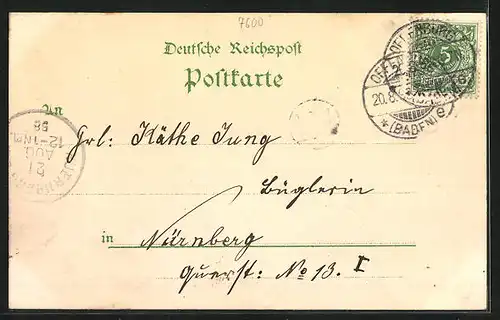 7600
Deutsche Reichspost
Postkarte
OFFENBURG
5
20.8.
*(BADEN)e
An
Frl: Käthe Jung
Büglerin
in Nürnberg
Querst: No 13. I
21
AUG.
12-1 Nm.
98